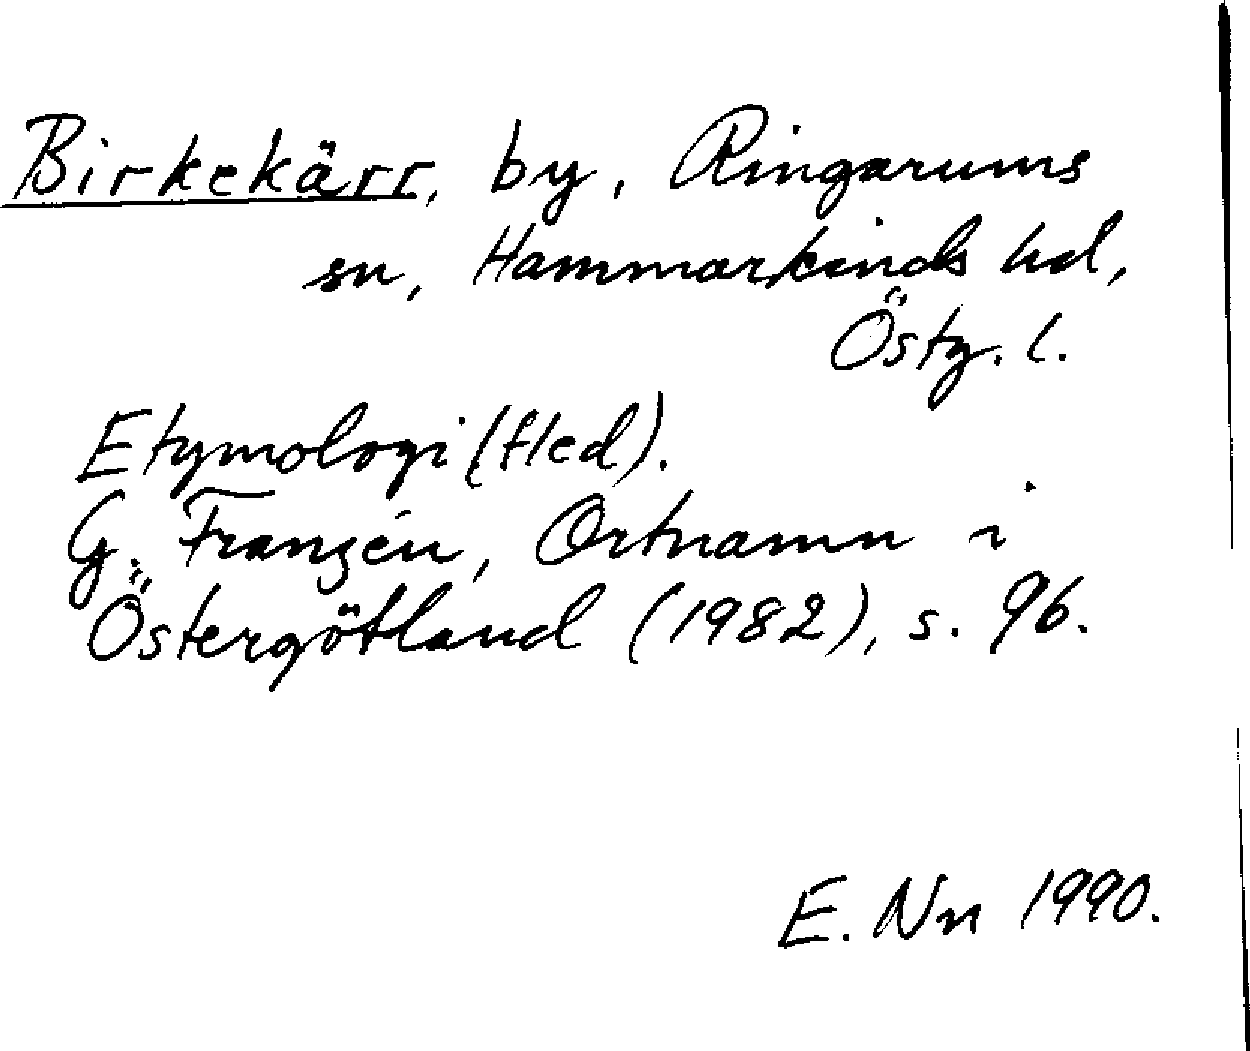 Birkekärr, by, Ringarums
sn, Hammarkinds hd,
Östg. l.
Etymologi (fled).
G. Franzén, Ortnamn i
Östergötland (1982), s. 96.
E. Nn 1990.